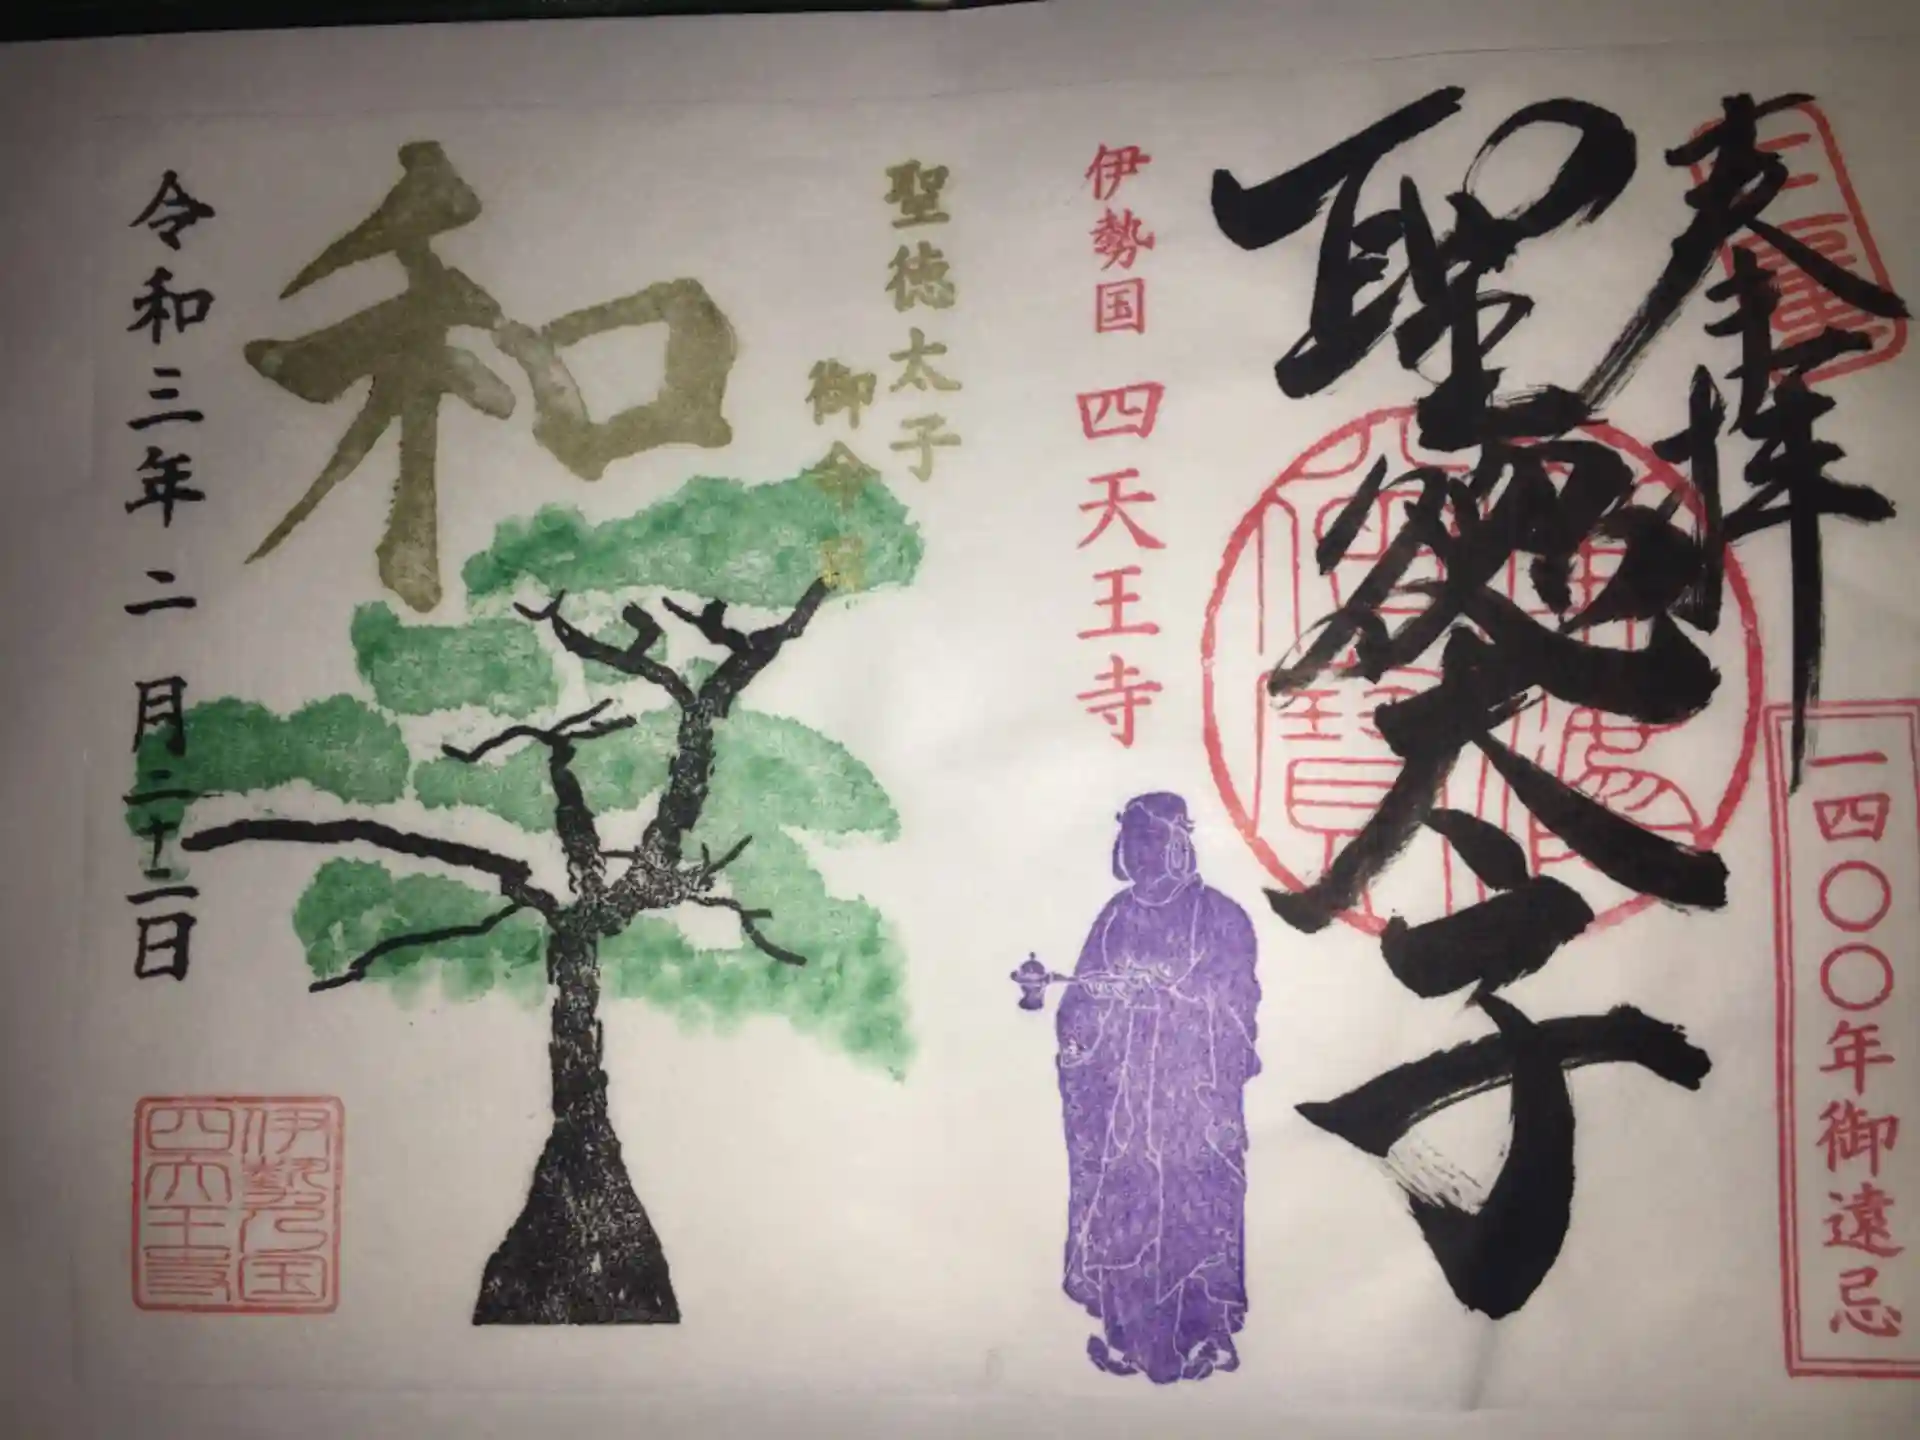 奉拝
一四〇〇年御遠忌
聖徳太子
伊勢国 四天王寺
聖徳太子
御命日
和
令和三年二月二十二日
伊勢之国
四天王寺